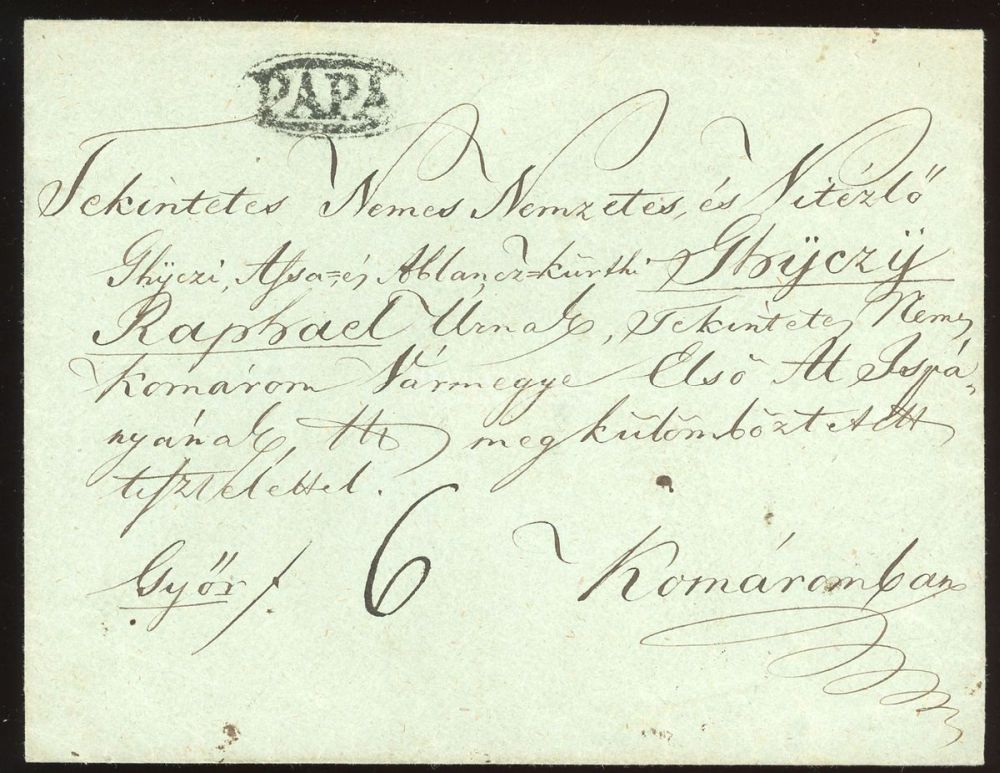 PÁPA
Tekintetes Nemes Nemzetes, és Vitézlő
Ghÿczi, Assa=és Ablancz=kürthi Ghÿczÿ
Raphael Úrnak, Tekintetes Nemes
Komárom Vármegye Első Al Ispá-
nyának, megkülömböztetett
tisztelettel.
Győr 6 Komáromban